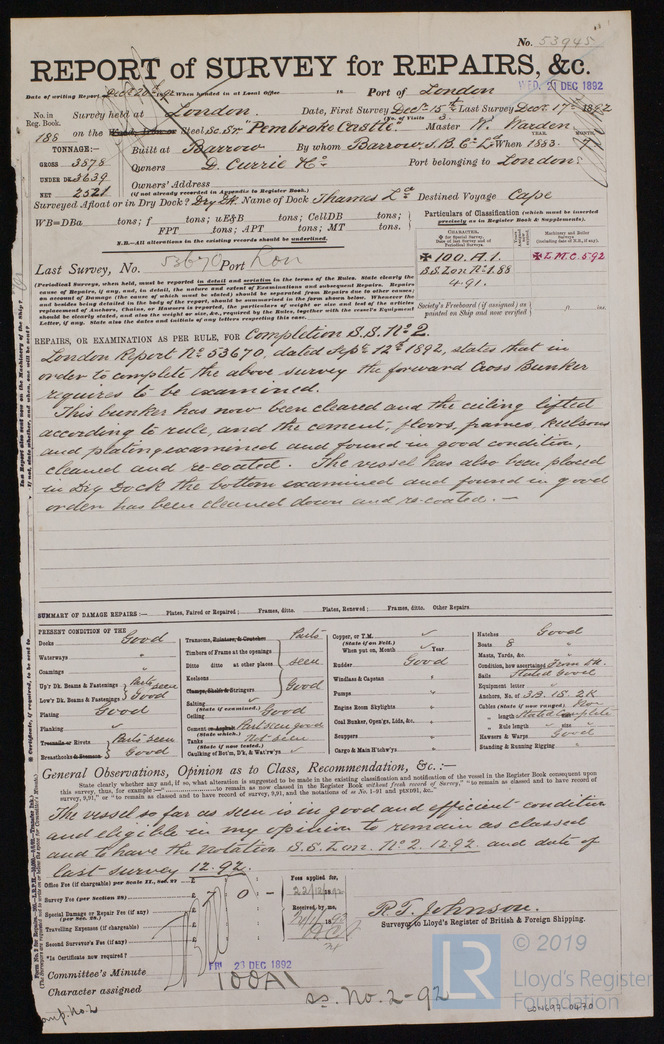 No. 53945
REPORT of SURVEY for REPAIRS, &c.
WED. 21 DEC 1892
Date of writing Report Decr 20th 1892 When handed in at Local Office 18 Port of London
No. in Reg. Book. Survey held at London. Date, First Survey Decr 15th Last Survey Decr 17th 1892
(No. of Visits 3
188 on the Wood, Iron or Steel Sc. Sr. "Pembroke Castle." Master W. Warden
TONNAGE:— Built at Barrow By whom Barrow S.B. Co. Ld When 1883
YEAR. MONTH.
GROSS 3578 Owners D. Currie & Co. Port belonging to London
UNDER DK 3639
NET 2521 Owners' Address
(if not already recorded in Appendix to Register Book.)
Surveyed Afloat or in Dry Dock? Dry Dk. Name of Dock Thames Destined Voyage Cape
WB=DBa tons; f tons; uE&B tons; CellDB tons;
FPT tons; APT tons; MT tons.
N.B.—All alterations in the existing records should be underlined.
Particulars of Classification (which must be inserted precisely as in Register Book & Supplements).
CHARACTER.
Machinery and Boiler Surveys
100.A.1. L.M.C. 5.92
S.S. Lon. No. 1. 88
4.91.
Society's Freeboard (if assigned) as painted on Ship and now verified ft. in.
Last Survey, No. 53670 Port Lon
(Periodical Surveys, when held, must be reported in detail and seriatim in the terms of the Rules. State clearly the
cause of Repairs, if any, and, in detail, the nature and extent of Examinations and subsequent Repairs. Repairs
on account of Damage (the cause of which must be stated) should be separated from Repairs due to other causes;
and besides being detailed in the body of the report, should be summarised in the form shown below.
REPAIRS, OR EXAMINATION AS PER RULE, FOR Completion S.S. No. 2.
London Report No. 53670, dated Sept. 12th 1892, states that in
order to complete the above survey the forward Cross Bunker
requires to be examined.
This bunker has now been cleared and the ceiling lifted
according to rule, and the cement, floors, frames, keelsons
and plating examined and found in good condition,
cleaned and re-coated. The vessel has also been placed
in Dry Dock the bottom examined and found in good
order has been cleaned down and re-coated. —
SUMMARY OF DAMAGE REPAIRS:— Plates, Faired or Repaired; Frames, ditto. Plates, Renewed; Frames, ditto. Other Repairs
PRESENT CONDITION OF THE
Decks Good
Waterways "
Coamings "
Up'r Dk. Beams & Fastenings Parts seen
Low'r Dk. Beams & Fastenings Good
Plating Good
Planking
Treenails or Rivets Parts seen
Breasthooks & Stemson Good
Transoms, Pointers, & Crutches Parts
Timbers of Frame at the openings
Ditto ditto at other places seen
Keelsons
Clamps, Shelfs & Stringers Good
Salting
(State if examined.)
Ceiling Good
Cement or Asphalt Part seen good
(State which.)
Tanks Not seen
(State if now tested.)
Caulking of Bot'm, D'k, & Wat'rw'ys
Copper, or Y.M.
(State if on Felt.)
When put on, Month Year
Rudder Good
Windlass & Capstan "
Pumps "
Engine Room Skylights "
Coal Bunker, Open'gs, Lids, &c. "
Scuppers "
Cargo & Main H'tchw'ys "
Hatches Good
Boats 8 "
Masts, Yards, &c. "
Condition, how ascertained From Dk.
Sails Stated Good
Equipment letter
Anchors, No. of 3.B. 1S. 2K
Cables (State if now ranged)
" length Stated complete
" Rule length size
Hawsers & Warps Good
Standing & Running Rigging "
General Observations, Opinion as to Class, Recommendation, &c. :—
State clearly whether any, and if so, what alteration is suggested to be made in the existing classification and notification of the vessel in the Register Book consequent upon
this survey, thus, for example — to remain as now classed in the Register Book without fresh record of Survey," "to remain as classed and to have record of
survey, 9,91," or "to remain as classed and to have record of survey, 9,91, and the notations of ss No. 1-91 and PtND91, &c."
The vessel so far as seen is in good and efficient condition
and eligible in my opinion to remain as classed
and to have the notation S.S. Lon. No. 2. 12.92. and date of
last survey 12.92.
Office Fee (if chargeable) per Scale II., Sec. 27 £
Survey Fee (per Section 28) £
Special Damage or Repair Fee (if any) (per Sec. 28.) £
Travelling Expenses (if chargeable) £
Second Surveyor's Fee (if any) £
*Is Certificate now required ?
Fees applied for,
22/12/1892
Received by me,
R. T. Johnson.
Surveyor to Lloyd's Register of British & Foreign Shipping.
Committee's Minute FRI 23 DEC 1892
Character assigned 100A1
ss. No. 2-92
© 2019
LR
Lloyd's Register
Foundation
LON697-0470